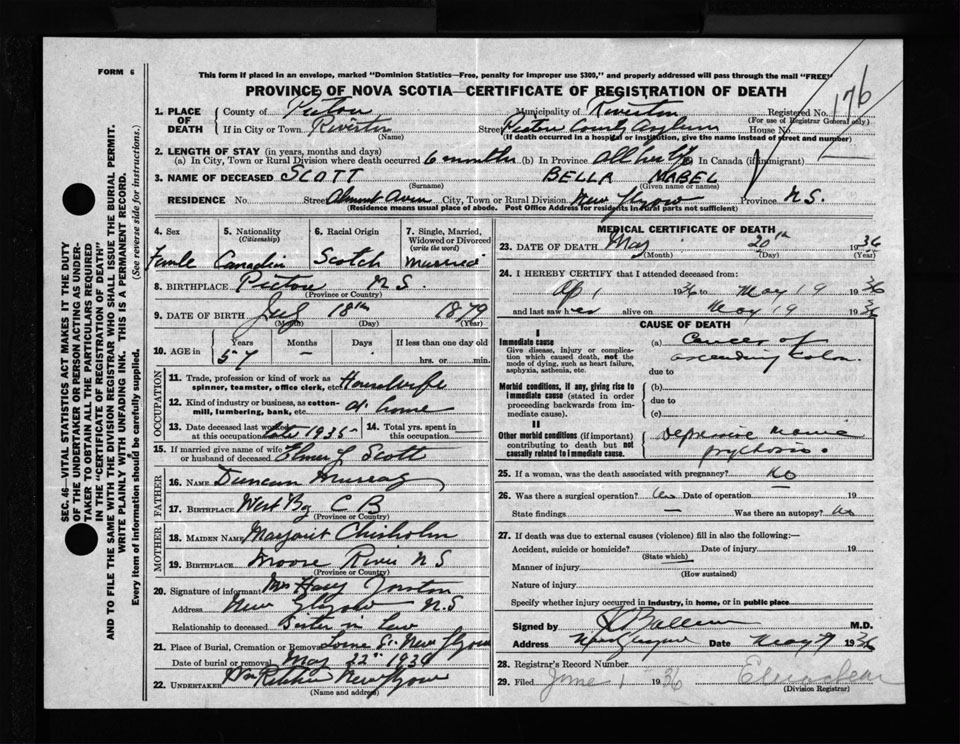 FORM 6
This form if placed in an envelope, marked "Dominion Statistics—Free, penalty for improper use $300," and properly addressed will pass through the mail "FREE"
PROVINCE OF NOVA SCOTIA—CERTIFICATE OF REGISTRATION OF DEATH
176
1. PLACE OF DEATH County of Pictou Municipality of Riverton Registered No.
(For use of Registrar General only)
If in City or Town Riverton Street Pictou County Asylum House No.
(Name) (If death occurred in a hospital or institution, give the name instead of street and number)
2. LENGTH OF STAY (in years, months and days)
(a) In City, Town or Rural Division where death occurred 6 months (b) In Province all her life (c) In Canada (if immigrant)
3. NAME OF DECEASED SCOTT BELLA MABEL
(Surname) (Given name or names)
RESIDENCE No. Street City, Town or Rural Division New Glasgow Province N.S.
(Residence means usual place of abode. Post Office Address for residents in rural parts not sufficient)
4. Sex 5. Nationality (Citizenship) 6. Racial Origin 7. Single, Married, Widowed or Divorced (write the word)
Female Canadian Scotch Married
8. BIRTHPLACE Pictou N.S.
(Province or Country)
9. DATE OF BIRTH July 18th 1879
(Month) (Day) (Year)
10. AGE in Years Months Days If less than one day old
57 — hrs. or min.
OCCUPATION
11. Trade, profession or kind of work as spinner, teamster, office clerk, etc. Housewife
12. Kind of industry or business, as cotton-mill, lumbering, bank, etc. at home
13. Date deceased last worked at this occupation 1935 14. Total yrs. spent in this occupation —
15. If married give name of wife or husband of deceased Elmer Scott
FATHER
16. NAME Duncan Murray
17. BIRTHPLACE West Bay C B
(Province or Country)
MOTHER
18. MAIDEN NAME Margaret Chisholm
19. BIRTHPLACE Moose River N S
(Province or Country)
20. Signature of informant Mrs Harry
Address New Glasgow N.S
Relationship to deceased Sister in law
21. Place of Burial, Cremation or Removal Lorne St. New Glasgow
Date of burial or removal May 22nd 1936
22. UNDERTAKER New Glasgow
(Name and address)
MEDICAL CERTIFICATE OF DEATH
23. DATE OF DEATH May 20th 1936
(Month) (Day) (Year)
24. I HEREBY CERTIFY that I attended deceased from:
Ap 1 1936 to May 19 1936
and last saw her alive on May 19 1936
CAUSE OF DEATH
I
Immediate cause
Give disease, injury or complication which caused death, not the mode of dying, such as heart failure, asphyxia, asthenia, etc.
(a) Cancer of
ascending Colon
due to
Morbid conditions, if any, giving rise to immediate cause (stated in order proceeding backwards from immediate cause).
(b)
due to
(c)
II
Other morbid conditions (if important) contributing to death but not causally related to immediate cause.
Depressive Mania
psychosis.
25. If a woman, was the death associated with pregnancy? No
26. Was there a surgical operation? No Date of operation 19
State findings — Was there an autopsy? No
27. If death was due to external causes (violence) fill in also the following:—
Accident, suicide or homicide? Date of injury 19
(State which)
Manner of injury
(How sustained)
Nature of injury
Specify whether injury occurred in industry, in home, or in public place
Signed by M.D.
Address New Glasgow Date May 1936
28. Registrar's Record Number
29. Filed June 1 1936
(Division Registrar)
SEC. 46—VITAL STATISTICS ACT MAKES IT THE DUTY
OF THE UNDERTAKER OR PERSON ACTING AS UNDER-
TAKER TO OBTAIN ALL THE PARTICULARS REQUIRED
IN THE "CERTIFICATE OF REGISTRATION OF DEATH"
AND TO FILE THE SAME WITH THE DIVISION REGISTRAR WHO SHALL ISSUE THE BURIAL PERMIT.
WRITE PLAINLY WITH UNFADING INK. THIS IS A PERMANENT RECORD.
Every item of information should be carefully supplied. (See reverse side for instructions.)